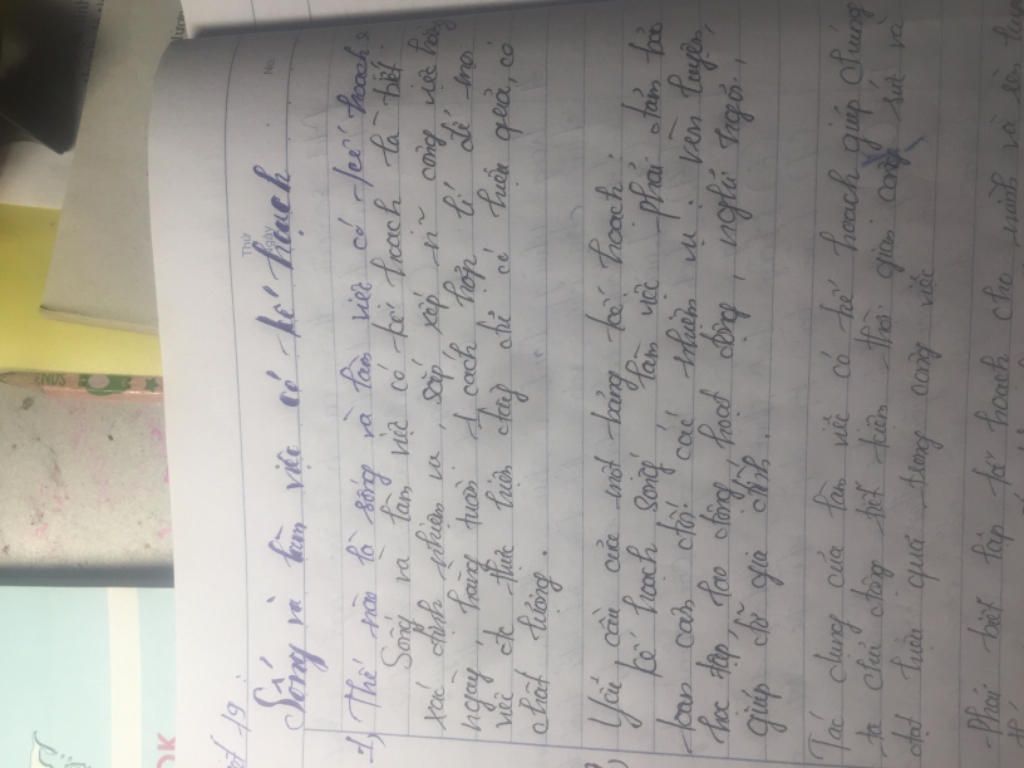 Thứ
Ngày
No.
19:
Sống và làm việc có kế hoạch
1, Thế nào là sống và làm việc có kế hoạch
Sống và làm việc có kế hoạch là biết
xác định nhiệm vụ sắp xếp công việc hàng
ngày, hàng tuần 1 cách hợp lí để mọi
việc đc thực hiện đầy đủ có hiệu quả, có
chất lượng.
Yêu cầu của một bảng kế hoạch:
kế hoạch sống làm việc phải đảm bảo
toàn cân đối các nhiệm vụ: rèn luyện,
học tập, lao động, hoạt động, nghỉ ngơi,
giúp đỡ gia đình.
Tác dụng của làm việc có kế hoạch giúp chúng
ta chủ động tiết kiệm thời gian công sức và
đạt hiệu quả trong công việc
- Phải biết lập kế hoạch cho mình và
OK